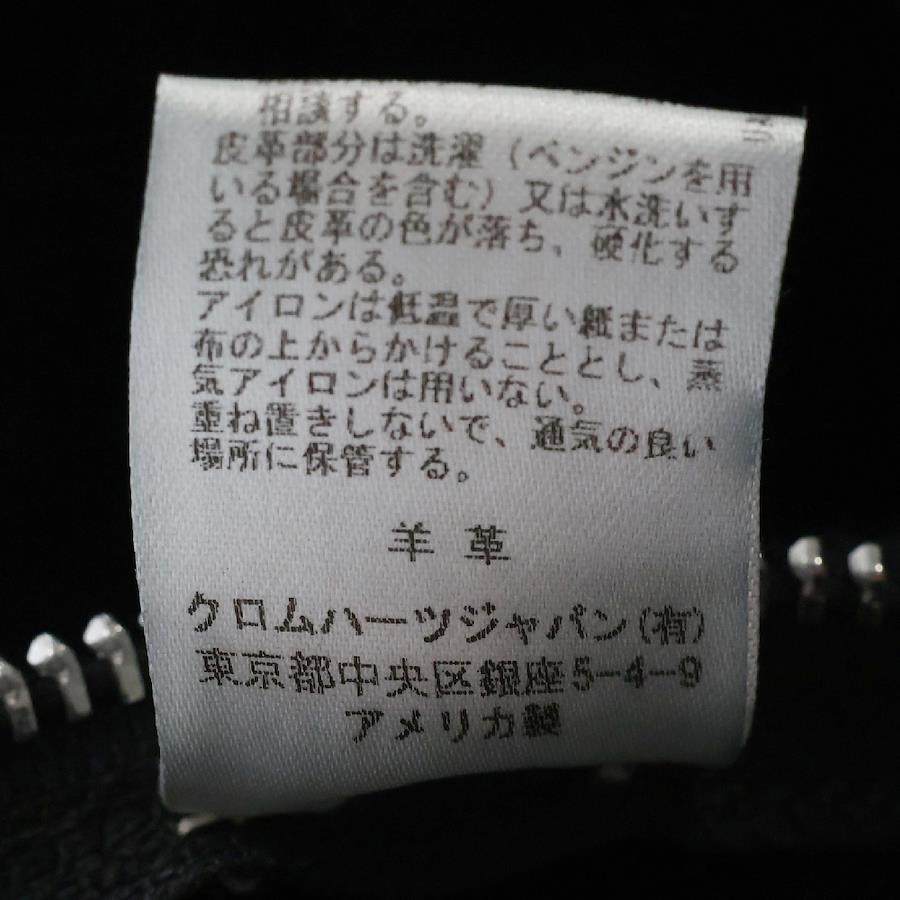 相談する。
皮革部分は洗濯（ベンジンを用
いる場合を含む）又は水洗いす
ると皮革の色が落ち、硬化する
恐れがある。
アイロンは低温で厚い紙または
布の上からかけることとし、蒸
気アイロンは用いない。
重ね置きしないで、通気の良い
場所に保管する。
羊革
クロムハーツジャパン(有)
東京都中央区銀座5-4-9
アメリカ製